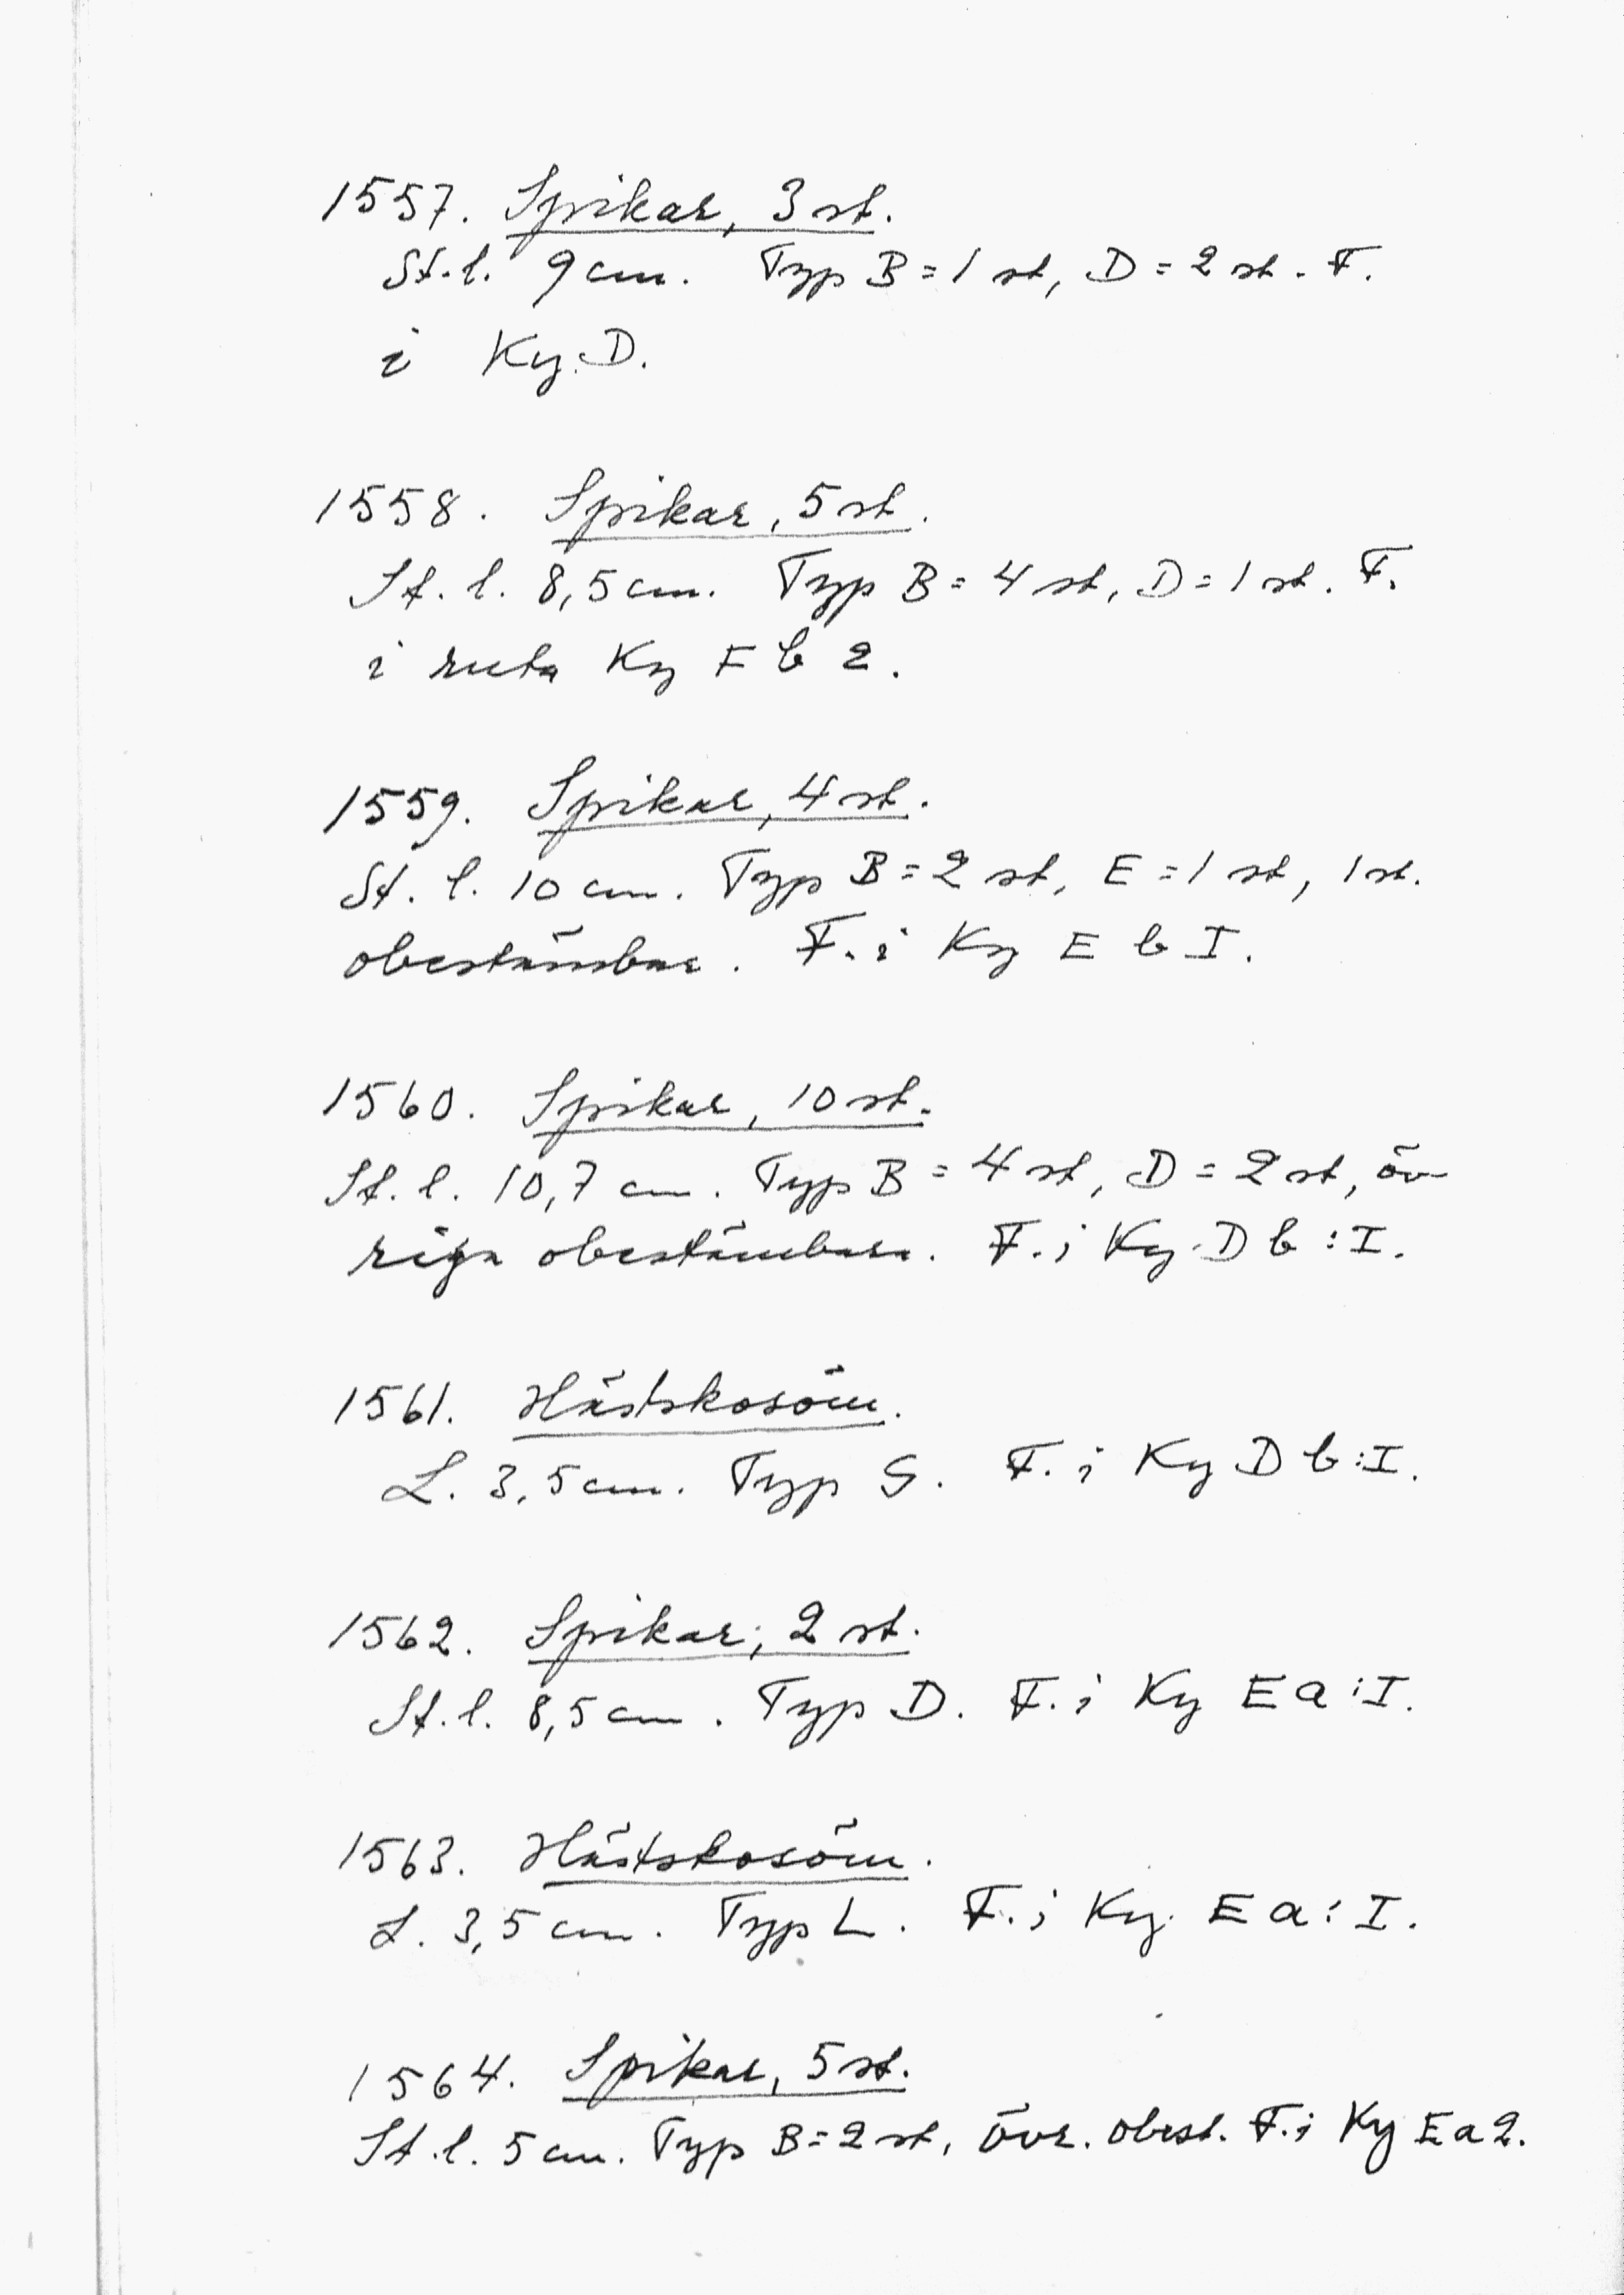 1557. Spikar, 3 st.
St. l. 9 cm. Typ B = 1 st, D = 2 st. F.
i Ky. D.
1558. Spikar, 5 st.
St. l. 8,5 cm. Typ B = 4 st, D = 1 st. F.
i ruta Ky E b 2.
1559. Spikar, 4 st.
St. l. 10 cm. Typ B = 2 st, E = 1 st, 1 st.
obestämbar. F. i Ky E b I.
1560. Spikar, 10 st.
St. l. 10,7 cm. Typ B = 4 st, D = 2 st, öv
riga obestämbara. F. i Ky. D b : I.
1561. Hästskosöm.
L. 3,5 cm. Typ G. F. i Ky D b : I.
1562. Spikar, 2 st.
St. l. 8,5 cm. Typ D. F. i Ky E a : I.
1563. Hästskosöm.
L. 3,5 cm. Typ L. F. i Ky. E a : I.
1564. Spikar, 5 st.
St. l. 5 cm. Typ B = 2 st, övr. obest. F. i Ky E a 2.